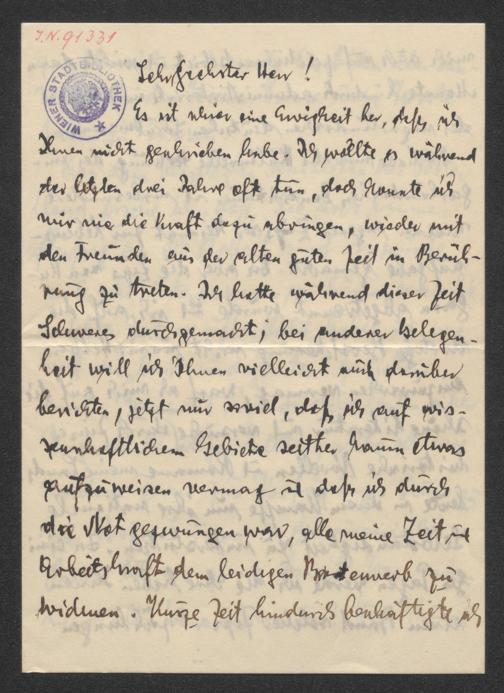 J.N. 91331
WIENER STADTBIBLIOTHEK
Sehrgeehrter Herr!
Es ist schier eine Ewigkeit her, daß ich
Ihnen nicht geschrieben habe. Ich wollte es während
der letzten drei Jahre oft tun, doch konnte ich
mir nie die Kraft dazu abringen, wieder mit
den Freunden aus der alten guten Zeit in Berüh-
rung zu treten. Ich hatte während dieser Zeit
Schweres durchgemacht; bei anderer Gelegen-
heit will ich Ihnen vielleicht auch darüber
berichten, jetzt nur soviel, daß ich auf wis-
senschaftlichem Gebiete seither kaum etwas
aufzuweisen vermag u daß ich durch
die Not gezwungen war, alle meine Zeit u
Arbeitskraft dem leidigen Broterwerb zu
widmen. Kurze Zeit hindurch beschäftigte ich